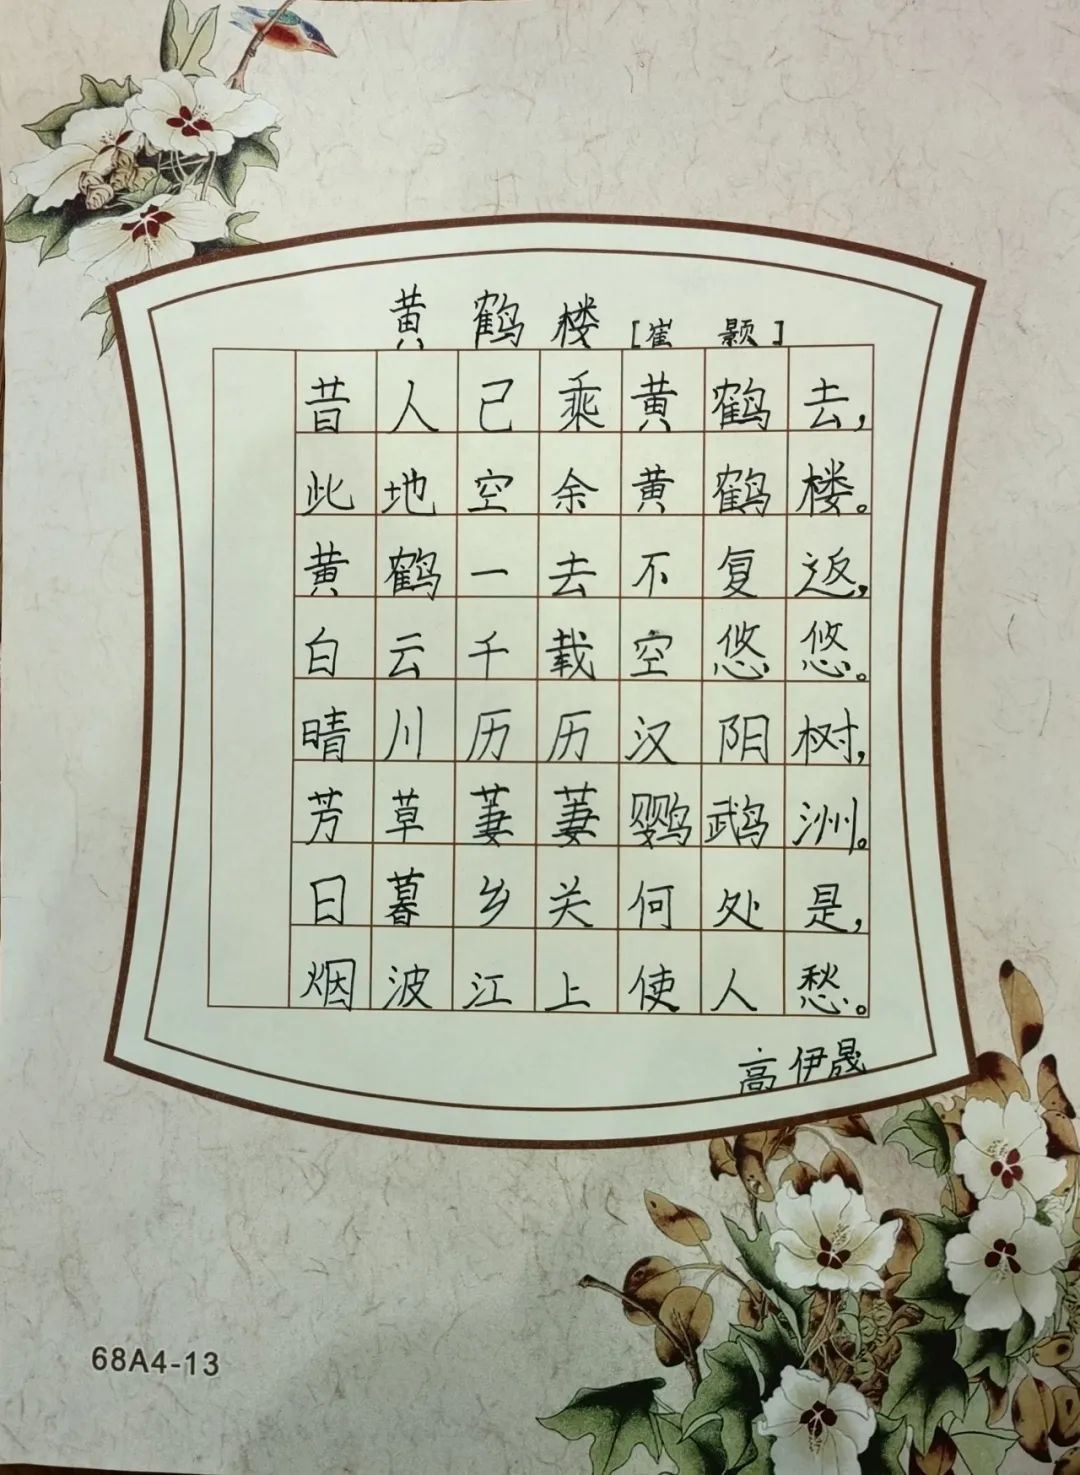 黄鹤楼[崔颢]
昔人己乘黄鹤去,
此地空余黄鹤楼。
黄鹤一去不复返,
白云千载空悠悠。
晴川历历汉阳树,
芳草萋萋鹦鹉洲。
日暮乡关何处是,
烟波江上使人愁。
高伊晟
68A4-13